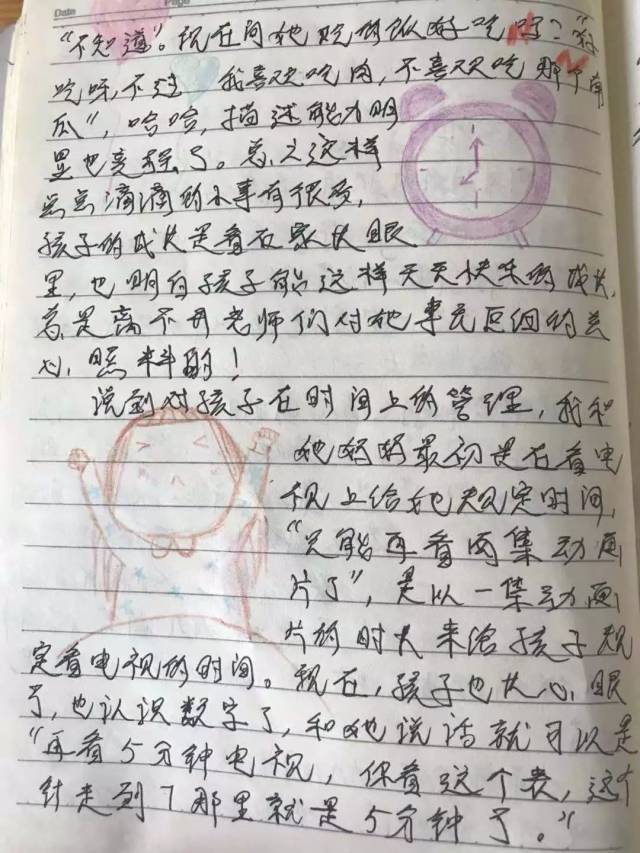 Date
Page
"不知道"。现在问她吃的饭好吃吗？"好
吃呀,不过 我喜欢吃肉,不喜欢吃那个南
瓜",哈哈,描述能力明
显也变强了。总之这样
点点滴滴的小事有很多,
孩子的成长是看在家长眼
里,也明白孩子能这样天天快乐的成长,
总是离不开老师们对她事无巨细的关
心、照料的!
说到对孩子在时间上的管理,我和
她妈妈最初是在看电
视上给她规定时间,
"只能再看两集动画
片了",是以一集动画
片的时长来给孩子规
定看电视的时间。现在,孩子也长心眼
了,也认识数字了,和她说话就可以是
"再看5分钟电视,你看这个表,这个
针走到7那里就是5分钟了。"